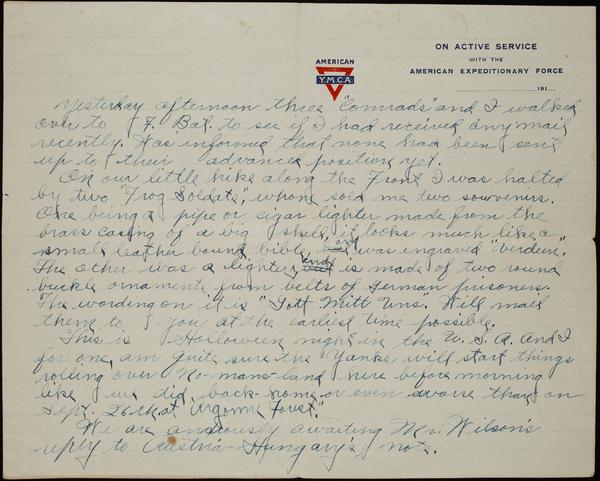 AMERICAN
Y.M.C.A.
ON ACTIVE SERVICE
WITH THE
AMERICAN EXPEDITIONARY FORCE
191
Yesterday afternoon three "Comrads" and I walked
over to F. Bat. to see if I had received any mail
recently. Was informed that none had been sent
up to their advanced position yet.
On our little hike along the Front I was halted
by two "Frog Soldats", whone sold me two souvenirs.
One being a pipe or cigar lighter made from the
brass casing of a big shell, it looks much like a
small leather bound bible, and was engraved "Verdun".
The other was a lighter, and is made of two round
buckle ornaments from belts of German prisoners.
The wording on it is "Gott Mitt Uns". Will mail
them to you at the earliest time possible.
This is Halloween night in the U.S.A. and I
for one, am quite sure the Yanks will start things
rolling over No-mans-land here before morning
like we did back home or even worse than on
Sept. 26th at Argonne Forest."
We are anxiously awaiting Mr. Wilson's
reply to Austria-Hungary's note.